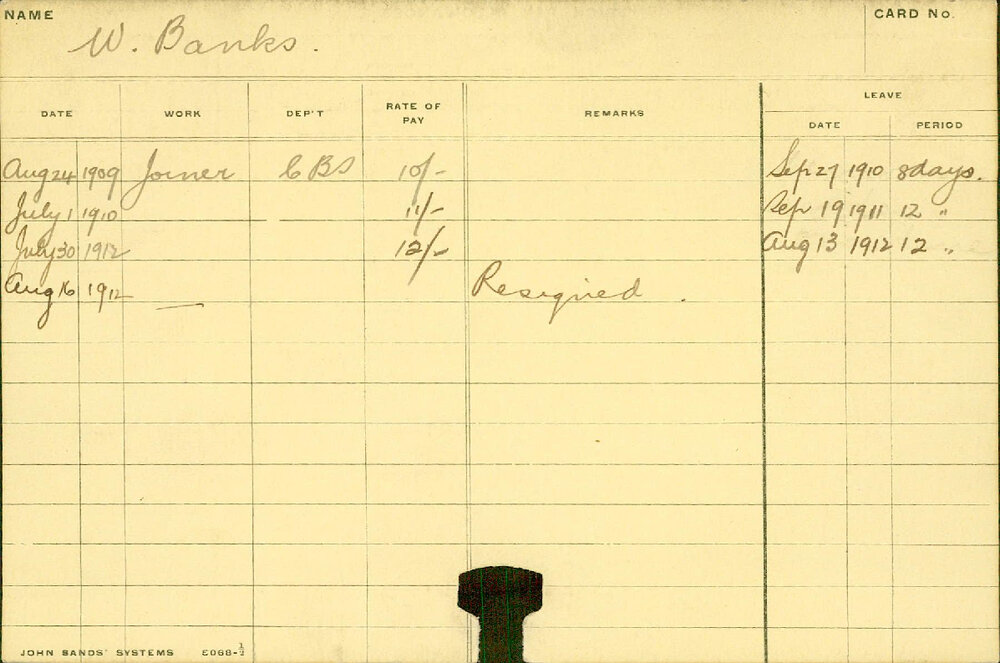 NAME
CARD No.
W. Banks.
LEAVE
DATE WORK DEP'T RATE OF PAY REMARKS DATE PERIOD
Aug 24 1909 Joiner CBS 10/- Sep 27 1910 8 days.
July 1 1910 11/- Sep 19 1911 12 "
July 30 1912 12/- Aug 13 1912 12 "
Aug 16 1912 — Resigned.
JOHN SANDS' SYSTEMS E068-½